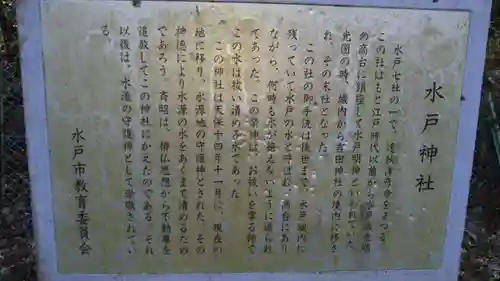 水戸神社
水戸七社の一で、速秋津命をまつる。
この社はもと江戸時代以前から水戸城本丸
の高台に鎮座して水戸明神といわれていた。
光圀の時、城内から吉田神社の境内に移さ
れ、その末社となった。
この社の御手洗は後世まで、水戸城内に
残っていて水戸の水と呼ばれ、高台にあり
ながら、何時も水が絶えないように造られ
てあった。この祭神は、お祓いを掌る神で
この水は祓い清める水であった。
この神社は天保十四年十一月に、現在の
地に移り、水源地の守護神とされた。その
神徳により水源の水をあくまで清めるため
であろう。斉昭は、排仏思想から
を
してこの神社にかえたのである。それ
以後は、水道の守護神として尊敬されてい
る。
水戸市教育委員会